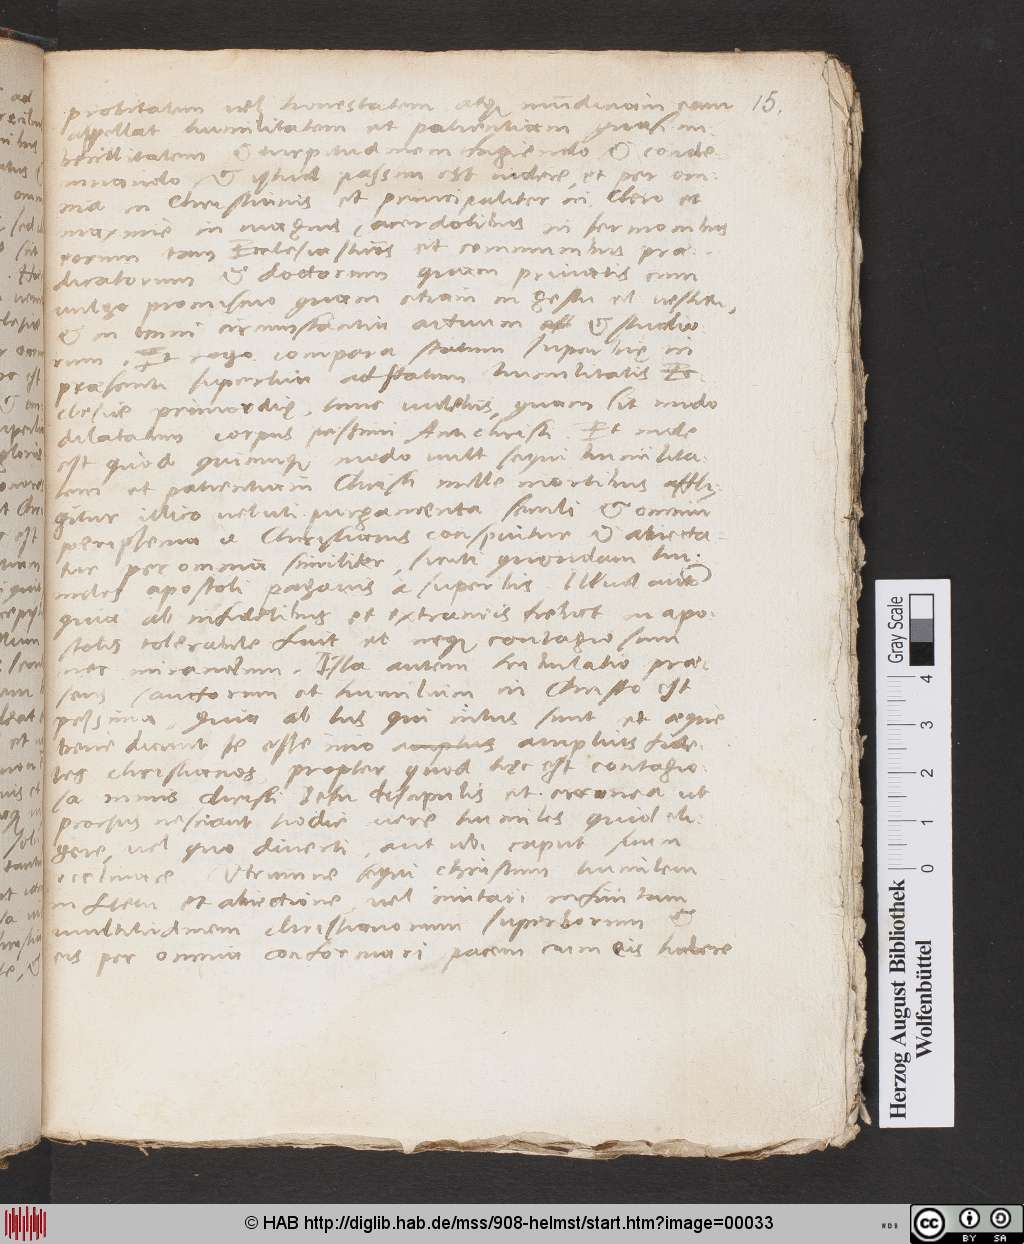 probitatem vel honestatem atq; mundiciam eam 15.
appellat humilitatem et patientiam quasi im-
becillitatem & turpitudinem fugiendo & conde-
mnando. & istud passim est videre, et per om-
nia in Christianis et principaliter in Clero et
maxime in magnis sacerdotibus in sermonibus
eorum tam Ecclesiasticis et communibus præ-
dicatorum & doctorum quam privatis cum
vulgo promiscuo quam etiam in gestu et vestitu,
& in omni circumstantia actuum & studio-
rum. Et rogo compara statum superbię in
præsenti superbia ad statum humilitatis Ec-
clesiæ primordię, tunc videbis, quam sit modo
dilatatum corpus pessimi Antichristi. Et inde
est quod quicunq; modo vult sequi humilita-
tem et patientiam Christi mille mortibus affli-
gitur illico veluti purgamenta seculi & omnium
peripsema a Christianis conspuitur & abiecta-
tur per omnia similiter, sicuti quondam hu-
miles apostoli paganis a superbis. Illud autem
quia ab infidelibus et extraneis fiebat in apo-
stolis tolerabile fuit et neq; contagiosum
nec mirandum. Ista autem tribulatio præ-
sens sanctorum et humilium in Christo est
pessima, quia ab his qui intus sunt et æque
bene dicunt se esse imo amplius amplius fide-
les christianos, propter quod hęc est contagio-
sa nimis christi Jesu discipulis et erronea ut
prorsus nesciant hodie vere humiles quid eli-
gere, vel quo diverti, aut ubi caput suum
reclinare. Utrumne sequi christum humilem
in fide et abiectione, vel imitari infinitam
multitudinem christianorum superborum &
eis per omnia conformari pacem cum eis habere
Gray Scale
0 1 2 3 4
Herzog August Bibliothek
Wolfenbüttel
© HAB http://diglib.hab.de/mss/908-helmst/start.htm?image=00033
WDB
CC BY SA